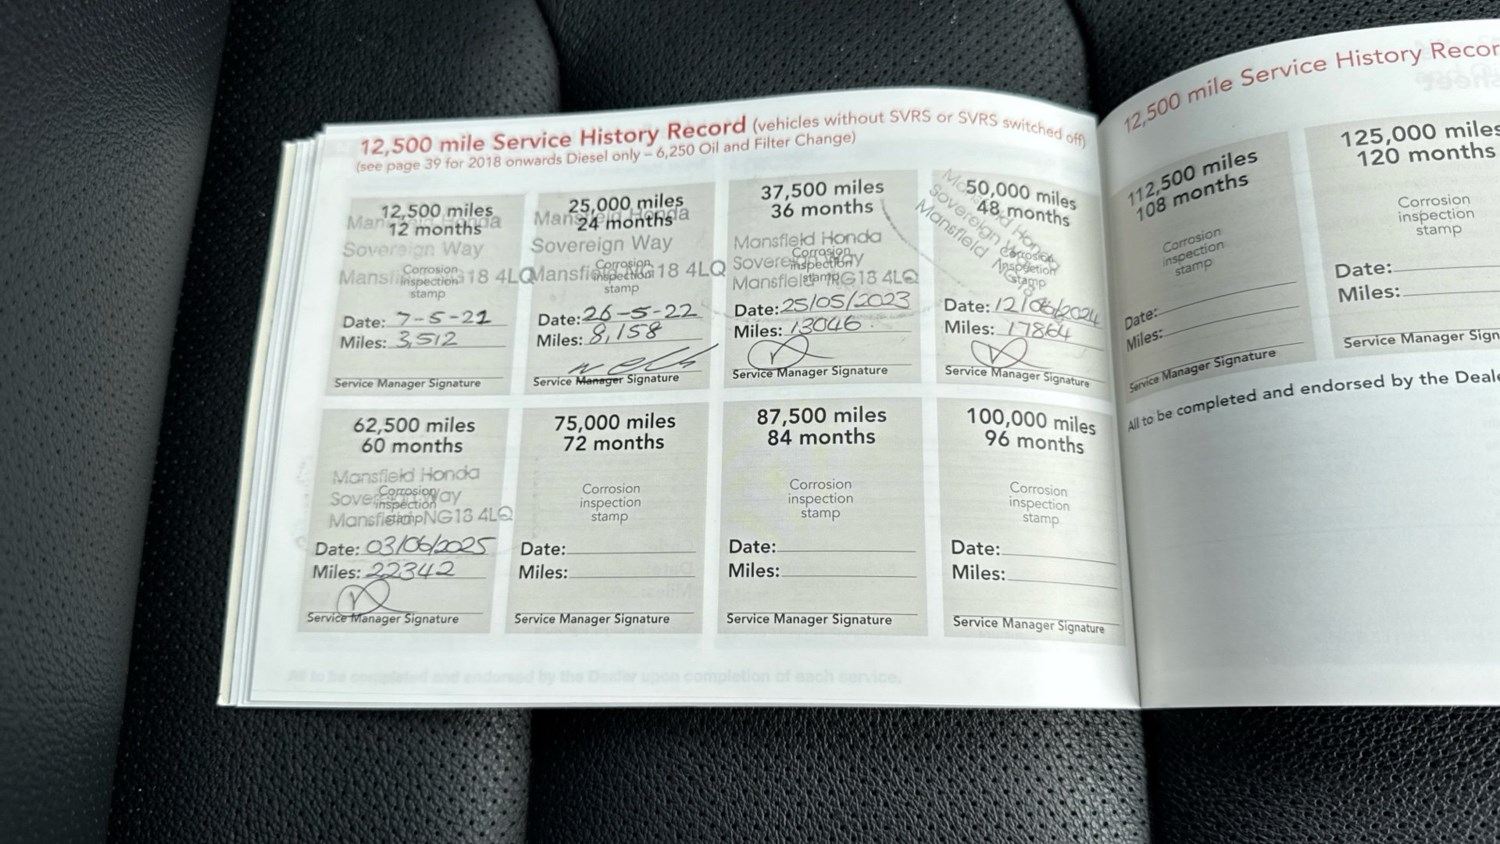 12,500 mile Service History Record (vehicles without SVRS or SVRS switched off)
(see page 39 for 2018 onwards Diesel only – 6,250 Oil and Filter Change)
12,500 miles
12 months
Mansfield Honda
Sovereign Way
Mansfield NG18 4LQ
Corrosion
inspection
stamp
Date: 7-5-21
Miles: 3,512
Service Manager Signature
25,000 miles
24 months
Mansfield Honda
Sovereign Way
Mansfield NG18 4LQ
Corrosion
inspection
stamp
Date: 26-5-22
Miles: 8,158
Service Manager Signature
37,500 miles
36 months
Mansfield Honda
Sovereign Way
Mansfield NG18 4LQ
Corrosion
inspection
stamp
Date: 25/05/2023
Miles: 13046
Service Manager Signature
50,000 miles
48 months
Mansfield Honda
Sovereign Way
Mansfield
Corrosion
inspection
stamp
Date: 12/06/2024
Miles: 17864
Service Manager Signature
62,500 miles
60 months
Mansfield Honda
Sovereign Way
Mansfield NG18 4LQ
Corrosion
inspection
stamp
Date: 03/06/2025
Miles: 22342
Service Manager Signature
75,000 miles
72 months
Corrosion
inspection
stamp
Date:
Miles:
Service Manager Signature
87,500 miles
84 months
Corrosion
inspection
stamp
Date:
Miles:
Service Manager Signature
100,000 miles
96 months
Corrosion
inspection
stamp
Date:
Miles:
Service Manager Signature
All to be completed and endorsed by the Dealer upon completion of each service.
12,500 mile Service History Recor
112,500 miles
108 months
Corrosion
inspection
stamp
Date:
Miles:
Service Manager Signature
125,000 miles
120 months
Corrosion
inspection
stamp
Date:
Miles:
Service Manager Sign
All to be completed and endorsed by the Deale